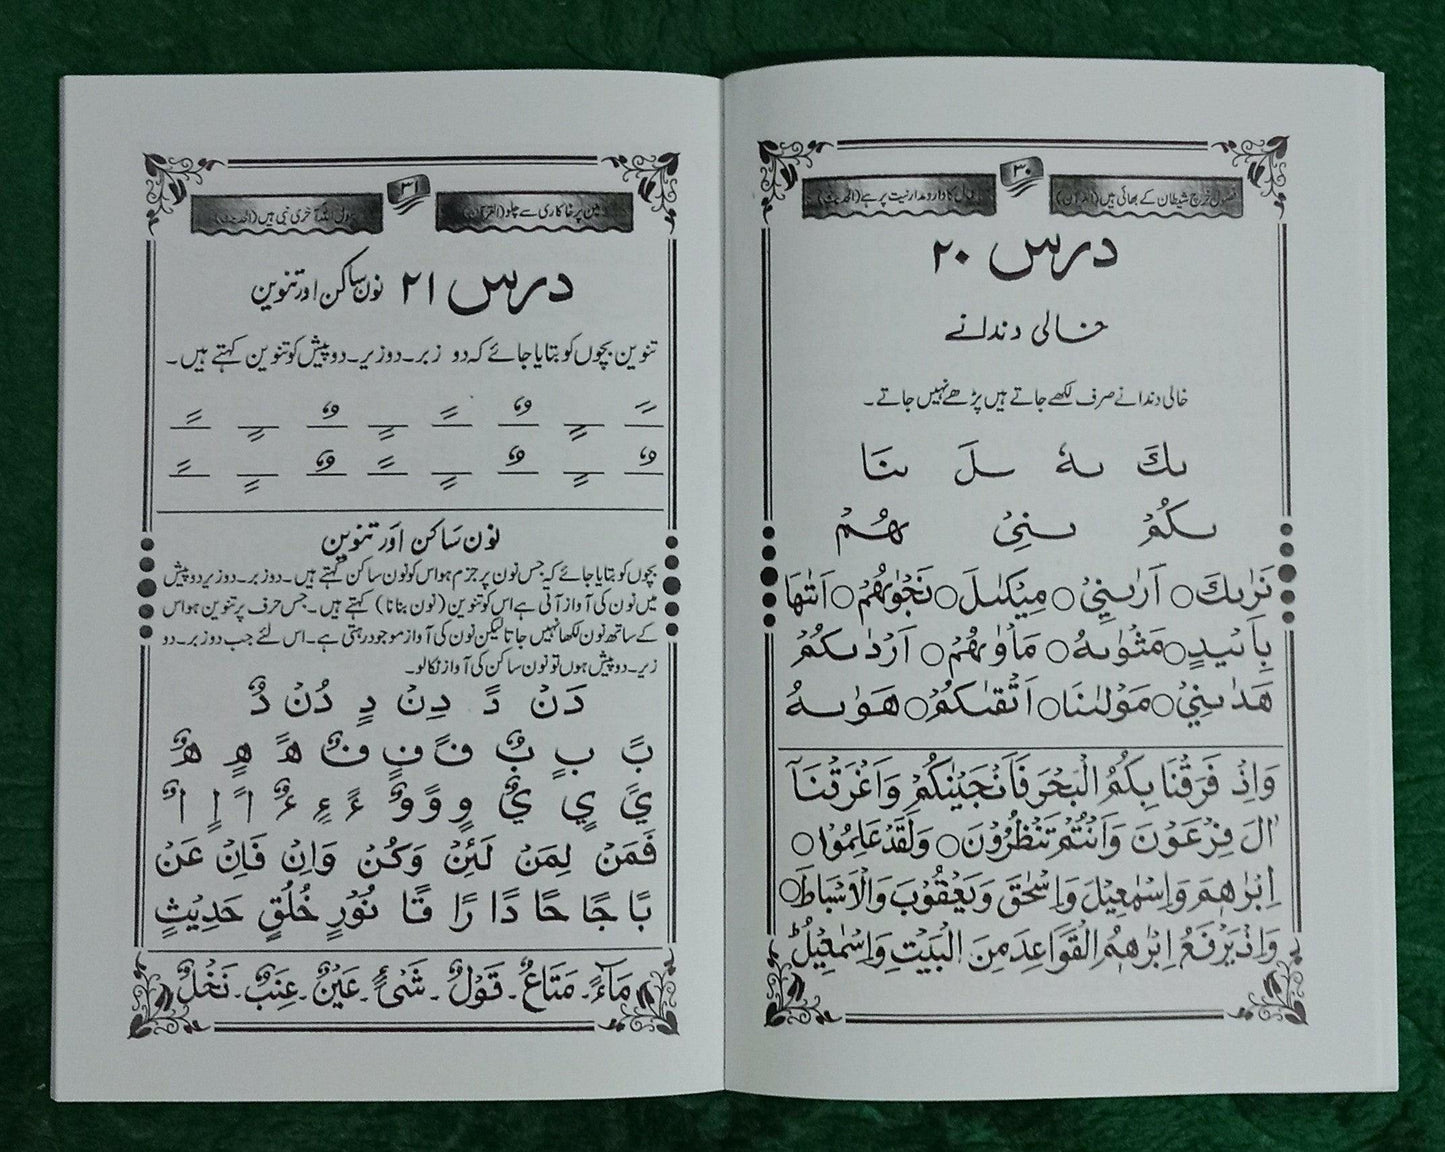 ۳۰
فضول خرچ شیطان کے بھائی ہیں (القرآن)
اعمال کا دارومدار نیت پر ہے (الحدیث)
درس ۲۰
خالی دندانے
خالی دندانے صرف لکھے جاتے ہیں پڑھے نہیں جاتے۔
ىكَ ىهٗ ىـلَ ىنَا
ىكُمْ ىنِيْ هُمْ
نَرٰىكَ ○ اَرٰىنِيْ ○ مِيْكٰىلَ ○ نَجْوٰىهُمْ ○ اَتٰىهَا
بِاَىْيدٍ ○ مَثْوٰىهُ ○ مَاْوٰىهُمْ ○ اَرْدٰىكُمْ
هَدٰىنِيْ ○ مَوْلٰىنَا ○ اَتْقٰىكُمْ ○ هَوٰىهُ
وَاِذْ فَرَقْنَا بِكُمُ الْبَحْرَ فَاَنْجَيْنٰكُمْ وَاَغْرَقْنَآ
اٰلَ فِرْعَوْنَ وَاَنْتُمْ تَنْظُرُوْنَ ○ وَلَقَدْ عَلِمُوْا ○
اِبْرٰهٖمَ وَاِسْمٰعِيْلَ وَاِسْحٰقَ وَيَعْقُوْبَ وَالْاَسْبَاطَ ○
وَاِذْ يَرْفَعُ اِبْرٰهٖمُ الْقَوَاعِدَ مِنَ الْبَيْتِ وَاِسْمٰعِيْلُ ؕ
۳۱
زمین پر خاکساری سے چلو (القرآن)
رسول اللہ آخری نبی ہیں (الحدیث)
درس ۲۱ نون ساکن اور تنوین
تنوین بچوں کو بتایا جائے کہ دو زبر۔ دو زیر۔ دو پیش کو تنوین کہتے ہیں۔
ً ٍ ٌ ً ٍ ٌ ٍ ً
ٌ ٍ ٌ ٍ ً ٌ ٍ ً
نون ساکن اور تنوین
بچوں کو بتایا جائے کہ جس نون پر جزم ہو اس کو نون ساکن کہتے ہیں۔ دو زبر۔ دو زیر دو پیش
میں نون کی آواز آتی ہے اس کو تنوین (نون بنانا) کہتے ہیں۔ جس حرف پر تنوین ہو اس
کے ساتھ نون لکھا نہیں جاتا لیکن نون کی آواز موجود رہتی ہے۔ اس لئے جب دو زبر۔ دو
زیر۔ دو پیش ہوں تو نون ساکن کی آواز نکالو۔
دَنْ دً دِنْ دٍ دُنْ دٌ
بً بٍ بٌ فً فٍ فٌ هً هٍ هٌ
يً يٍ يٌ وٍ وً وٌ ءً ءٍ ءٌ اً اٍ اٌ
فَمَنْ لِمَنْ لَئِنْ وَكُنْ وَاِنْ فَاِنْ عَنْ
بًا جًا حًا دًا رًا قًا نُوْرٍ خُلُقٍ حَدِيْثٍ
مَآءً۔ مَتَاعٌ۔ قَوْلٌ۔ شَىْءٍ۔ عَيْنٌ۔ عِنَبٌ۔ نَخْلٌ